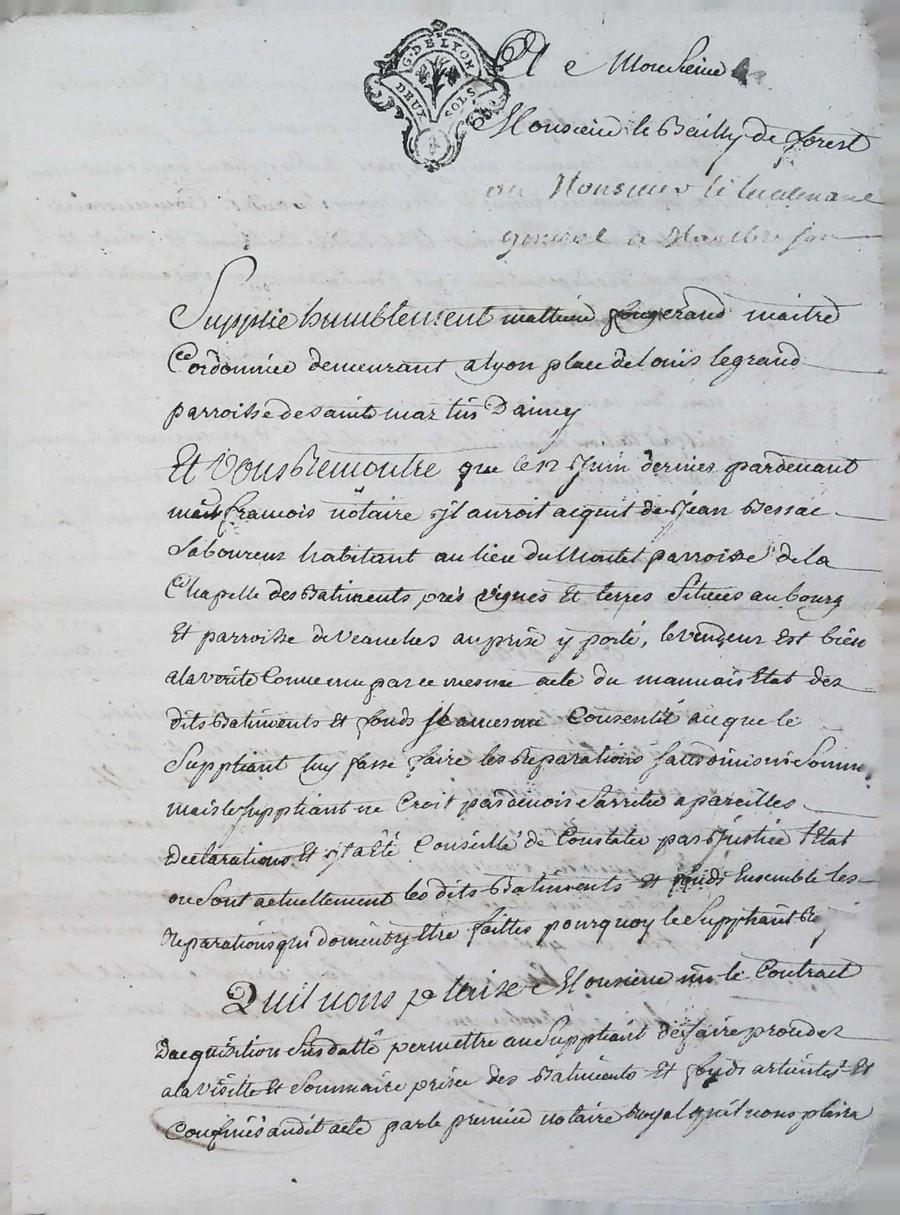 G. DE LYON
DEUX SOLS
A Monsieur
Monsieur le Bailly de forest
ou Monsieur le lieutenant
general a Montbrison
Supplie humblement mathieu maitre
Cordonnier demeurant a lyon place de Louis legrand
parroisse de saint martin Dainey
Et Vous Remontre que le 12 Juin dernier pardevant
françois nôtaire jl auroit acquit de Jean Bessac
Laboureur habitant au lieu du Montet parroisse de la
Chapelle des Batiments prés vignes Et terres Situés au bourg
Et parroisse de veauches au prix y porté, le vendeur Est bien
ala verité Convenu par ce mesme acte du mauvais Etat des
dits Batiments Et fonds Jl a mesme Consentit a ce que le
Suppliant luy fasse faire les Reparations
mais le suppliant ne Croit pas devoir Sarreter a pareilles
declarations Et jl a été Conseillé de Constater par Justice l'Etat
ou Sont actuellement les dits Batiments Et fonds Ensemble les
Reparations qui doivent y Etre faittes pourquoy le Suppliant Re
Quil vous plaise Monsieur vû le Contract
Dacquisition Susdatté permettre au Suppliant de faire proceder
ala visitte Et Sommaire prisée des Batiments Et fonds articulés Et
Confinés audit acte par le premier notaire Royal quil vous plaira